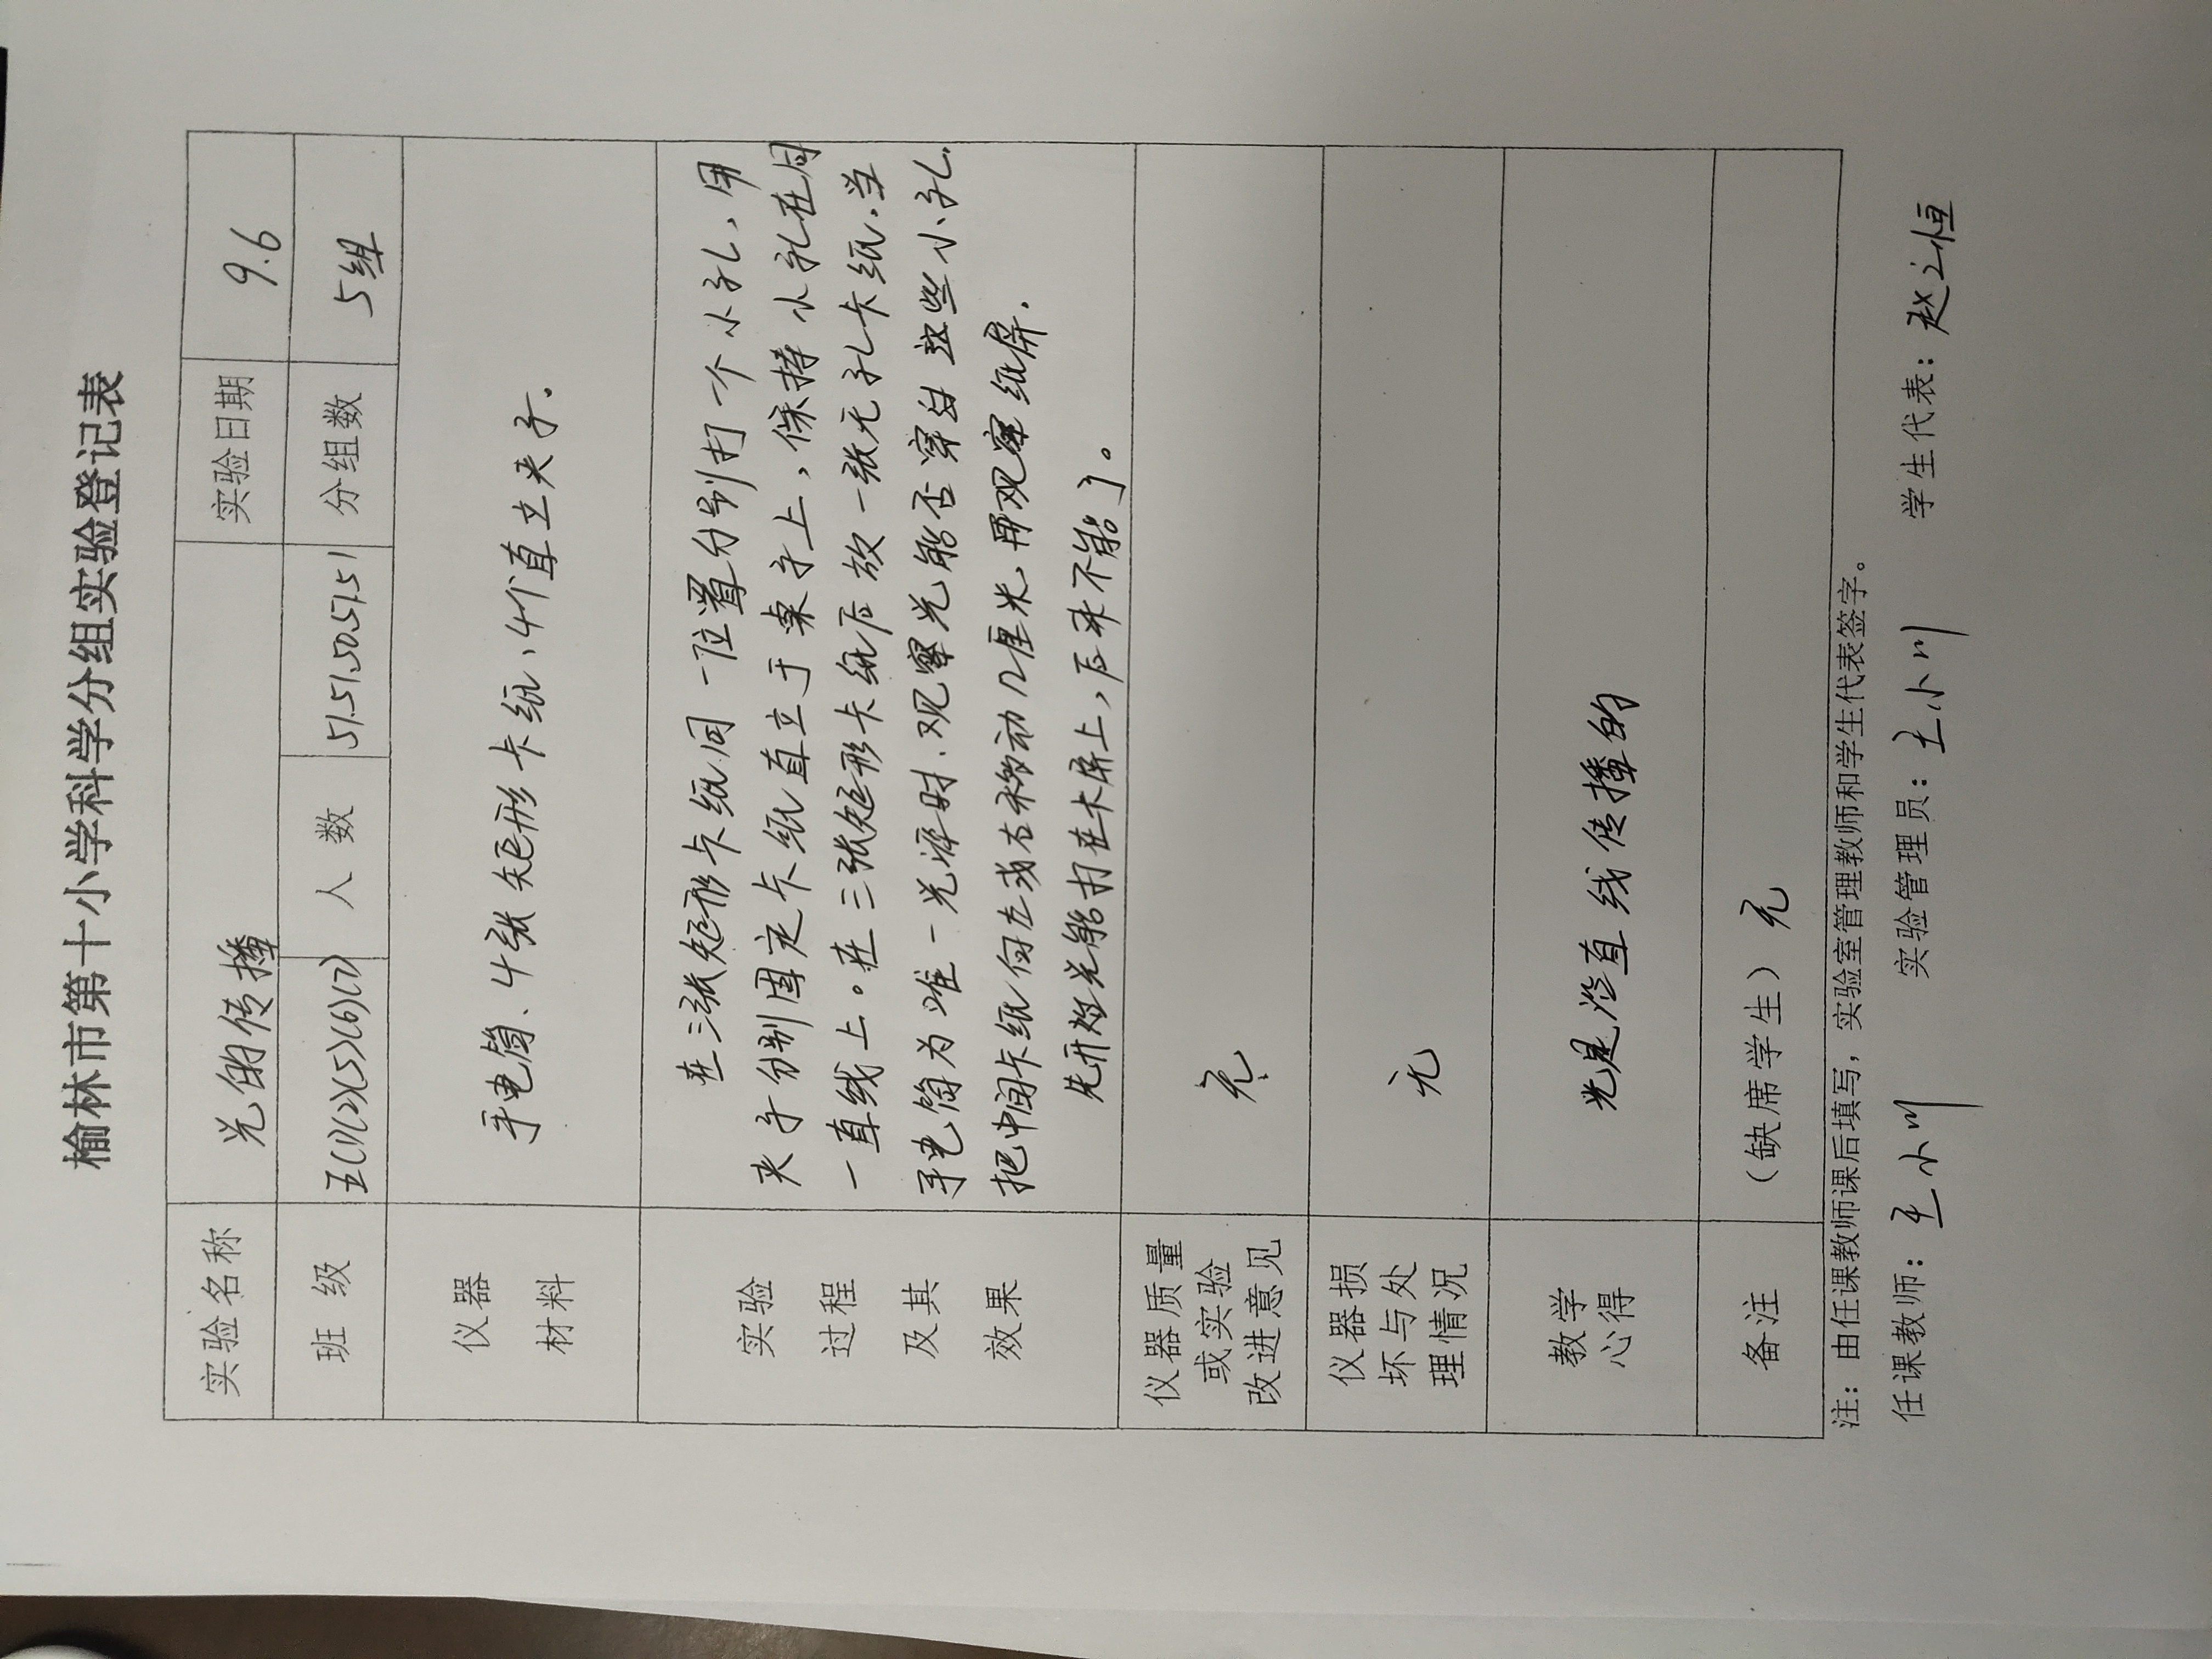 榆林市第十小学科学分组实验登记表
实验名称 光的传播 实验日期 9.6
班 级 五(1)(2)(5)(6)(7) 人 数 51.51.50.51.51 分组数 5组
仪器
材料
手电筒、4张矩形卡纸、4个直立夹子.
实验
过程
及其
效果
在三张矩形卡纸同一位置分别打一个小孔,用
夹子分别固定卡纸直立于桌子上,保持小孔在同
一直线上。在三张矩形卡纸后放一张无孔卡纸.当
手电筒为唯一光源时、观察光能否穿过这些小孔.
把中间卡纸向左或右移动2厘米,再观察纸屏.
先开始光能打在卡屏上,后来不能了。
仪器质量
或实验
改进意见
无.
仪器损
坏与处
理情况
无
教学
心得
光是沿直线传播的
备注 (缺席学生) 无
注:由任课教师课后填写,实验室管理教师和学生代表签字。
任课教师:王小川 实验管理员:王小川 学生代表:赵云恒